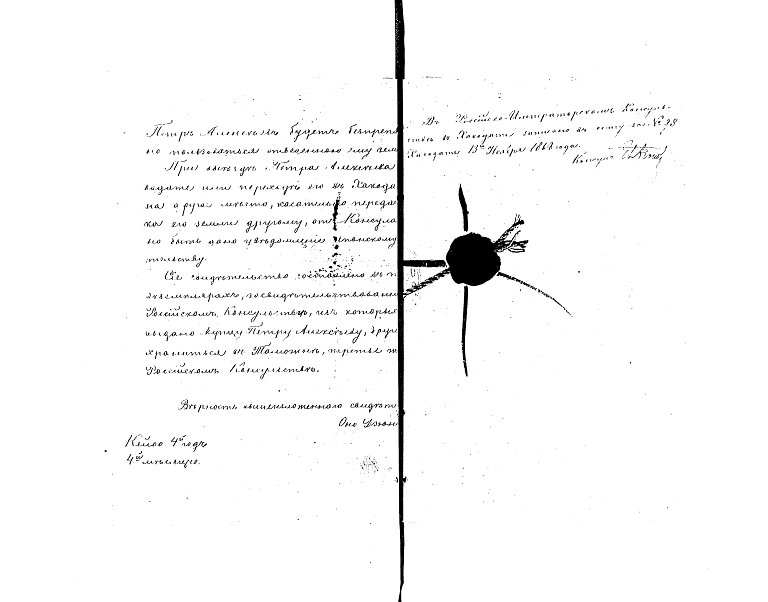 Петръ Алексѣевъ будетъ безпреп
но пользоваться отведенною ему зем
При выѣздѣ Петра Алексѣева
кодате или переходѣ его въ Хакода
на другое мѣсто, касательно переда
ка его земли другому, отъ Консула
но быть дано увѣдомленіе Японскому
тельству.
Сіе свидѣтельство составлено въ т
экземплярахъ, засвидѣтельствован
Россійскомъ Консульствѣ, изъ которыхъ
выдано купцу Петру Алексѣеву, друг
храниться въ Таможнѣ, третье
Россійскомъ Консульствѣ.
Вѣрность вышеизложеннаго свидѣт
Оно
Кейво 4й годъ
4й мѣсяцъ.
Въ Россійско-Императорскомъ Консуль-
ствѣ въ Хакодате записано въ книгу за № 98
Хакодате 15го Ноября 1868 года.
Консулъ